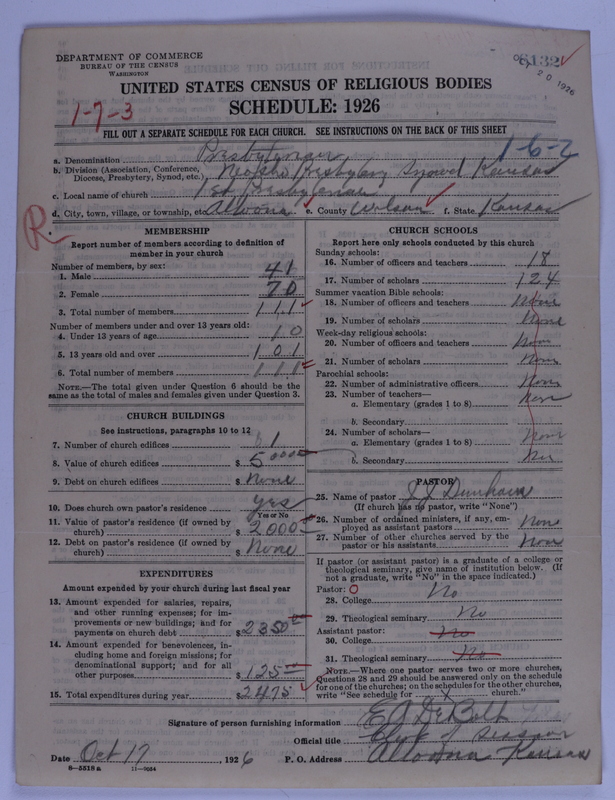 DEPARTMENT OF COMMERCE
BUREAU OF THE CENSUS
WASHINGTON
6132
OCT 20 1926
UNITED STATES CENSUS OF RELIGIOUS BODIES
SCHEDULE: 1926
1-7-3
FILL OUT A SEPARATE SCHEDULE FOR EACH CHURCH. SEE INSTRUCTIONS ON THE BACK OF THIS SHEET
1-6-2
a. Denomination Presbyterian
b. Division (Association, Conference, Diocese, Presbytery, Synod, etc.) Neosho Presbytery Synod Kansas
c. Local name of church 1st Presbyterian
d. City, town, village, or township, etc. Altoona e. County Wilson f. State Kansas
R
MEMBERSHIP
Report number of members according to definition of
member in your church
Number of members, by sex:
1. Male 41
2. Female 70
3. Total number of members 111
Number of members under and over 13 years old:
4. Under 13 years of age 10
5. 13 years old and over 101
6. Total number of members 111
NOTE.—The total given under Question 6 should be
same as the total of males and females given under Question 3.
CHURCH BUILDINGS
See instructions, paragraphs 10 to 12
7. Number of church edifices 1
8. Value of church edifices $ 5000
9. Debt on church edifices $ None
10. Does church own pastor's residence yes
Yes or No
11. Value of pastor's residence (if owned by
church) $ 2000
12. Debt on pastor's residence (if owned by
church) $ None
EXPENDITURES
Amount expended by your church during last fiscal year
13. Amount expended for salaries, repairs,
and other running expenses; for im-
provements or new buildings; and for
payments on church debt $ 2350
14. Amount expended for benevolences, in-
cluding home and foreign missions; for
denominational support; and for all
other purposes $ 125
15. Total expenditures during year $ 2475
CHURCH SCHOOLS
Report here only schools conducted by this church
Sunday schools:
16. Number of officers and teachers 18
17. Number of scholars 124
Summer vacation Bible schools:
18. Number of officers and teachers None
19. Number of scholars None
Week-day religious schools:
20. Number of officers and teachers None
21. Number of scholars None
Parochial schools:
22. Number of administrative officers None
23. Number of teachers—
a. Elementary (grades 1 to 8) None
b. Secondary
24. Number of scholars—
a. Elementary (grades 1 to 8) None
b. Secondary None
PASTOR
25. Name of pastor J J Dunham
(If church has no pastor, write "None")
26. Number of ordained ministers, if any, em-
ployed as assistant pastors None
27. Number of other churches served by the
pastor or his assistants None
If pastor (or assistant pastor) is a graduate of a college or
theological seminary, give name of institution below. (If
not a graduate, write "No" in the space indicated.)
Pastor: O
28. College No
29. Theological seminary No
Assistant pastor: No
30. College
31. Theological seminary No
NOTE.—Where one pastor serves two or more churches,
Questions 28 and 29 should be answered only on the schedule
for one of the churches; on the schedules for the other churches,
write "See schedule for X church."
Signature of person furnishing information E A DeBolt
Official title Clerk of Session
Date Oct 17, 1926 P. O. Address Altoona Kansas
8—5518 a 11—9054